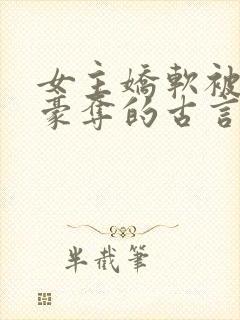 女主嬌軟被
豪奪的古言
半截筆